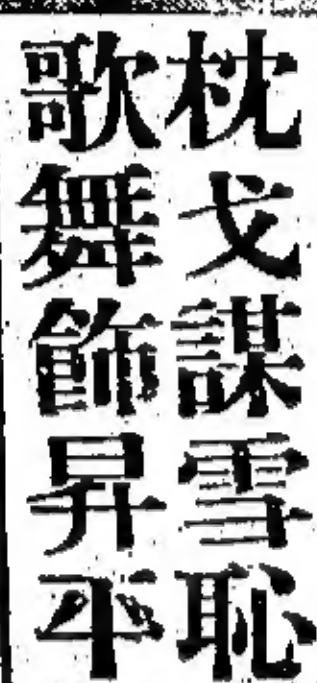 枕戈謀雪恥
歌舞飾昇平